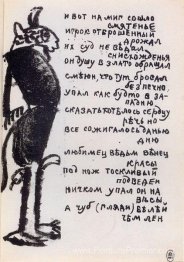 и вот на миг сошло
смятенье
игрок оторошенный
дрожал
их суд не ведал
снисхожденья
он душу в злато обращал
смеюн, что тут бродал
безпечно
упал как будто в за-
сказать хотелось сердцу
речь но
все сожигалось данью
дню
любимец ведьм венец
красы
под нож тоскливый
подведен
ничком упал он на
весы
а чуб белей
чем лен